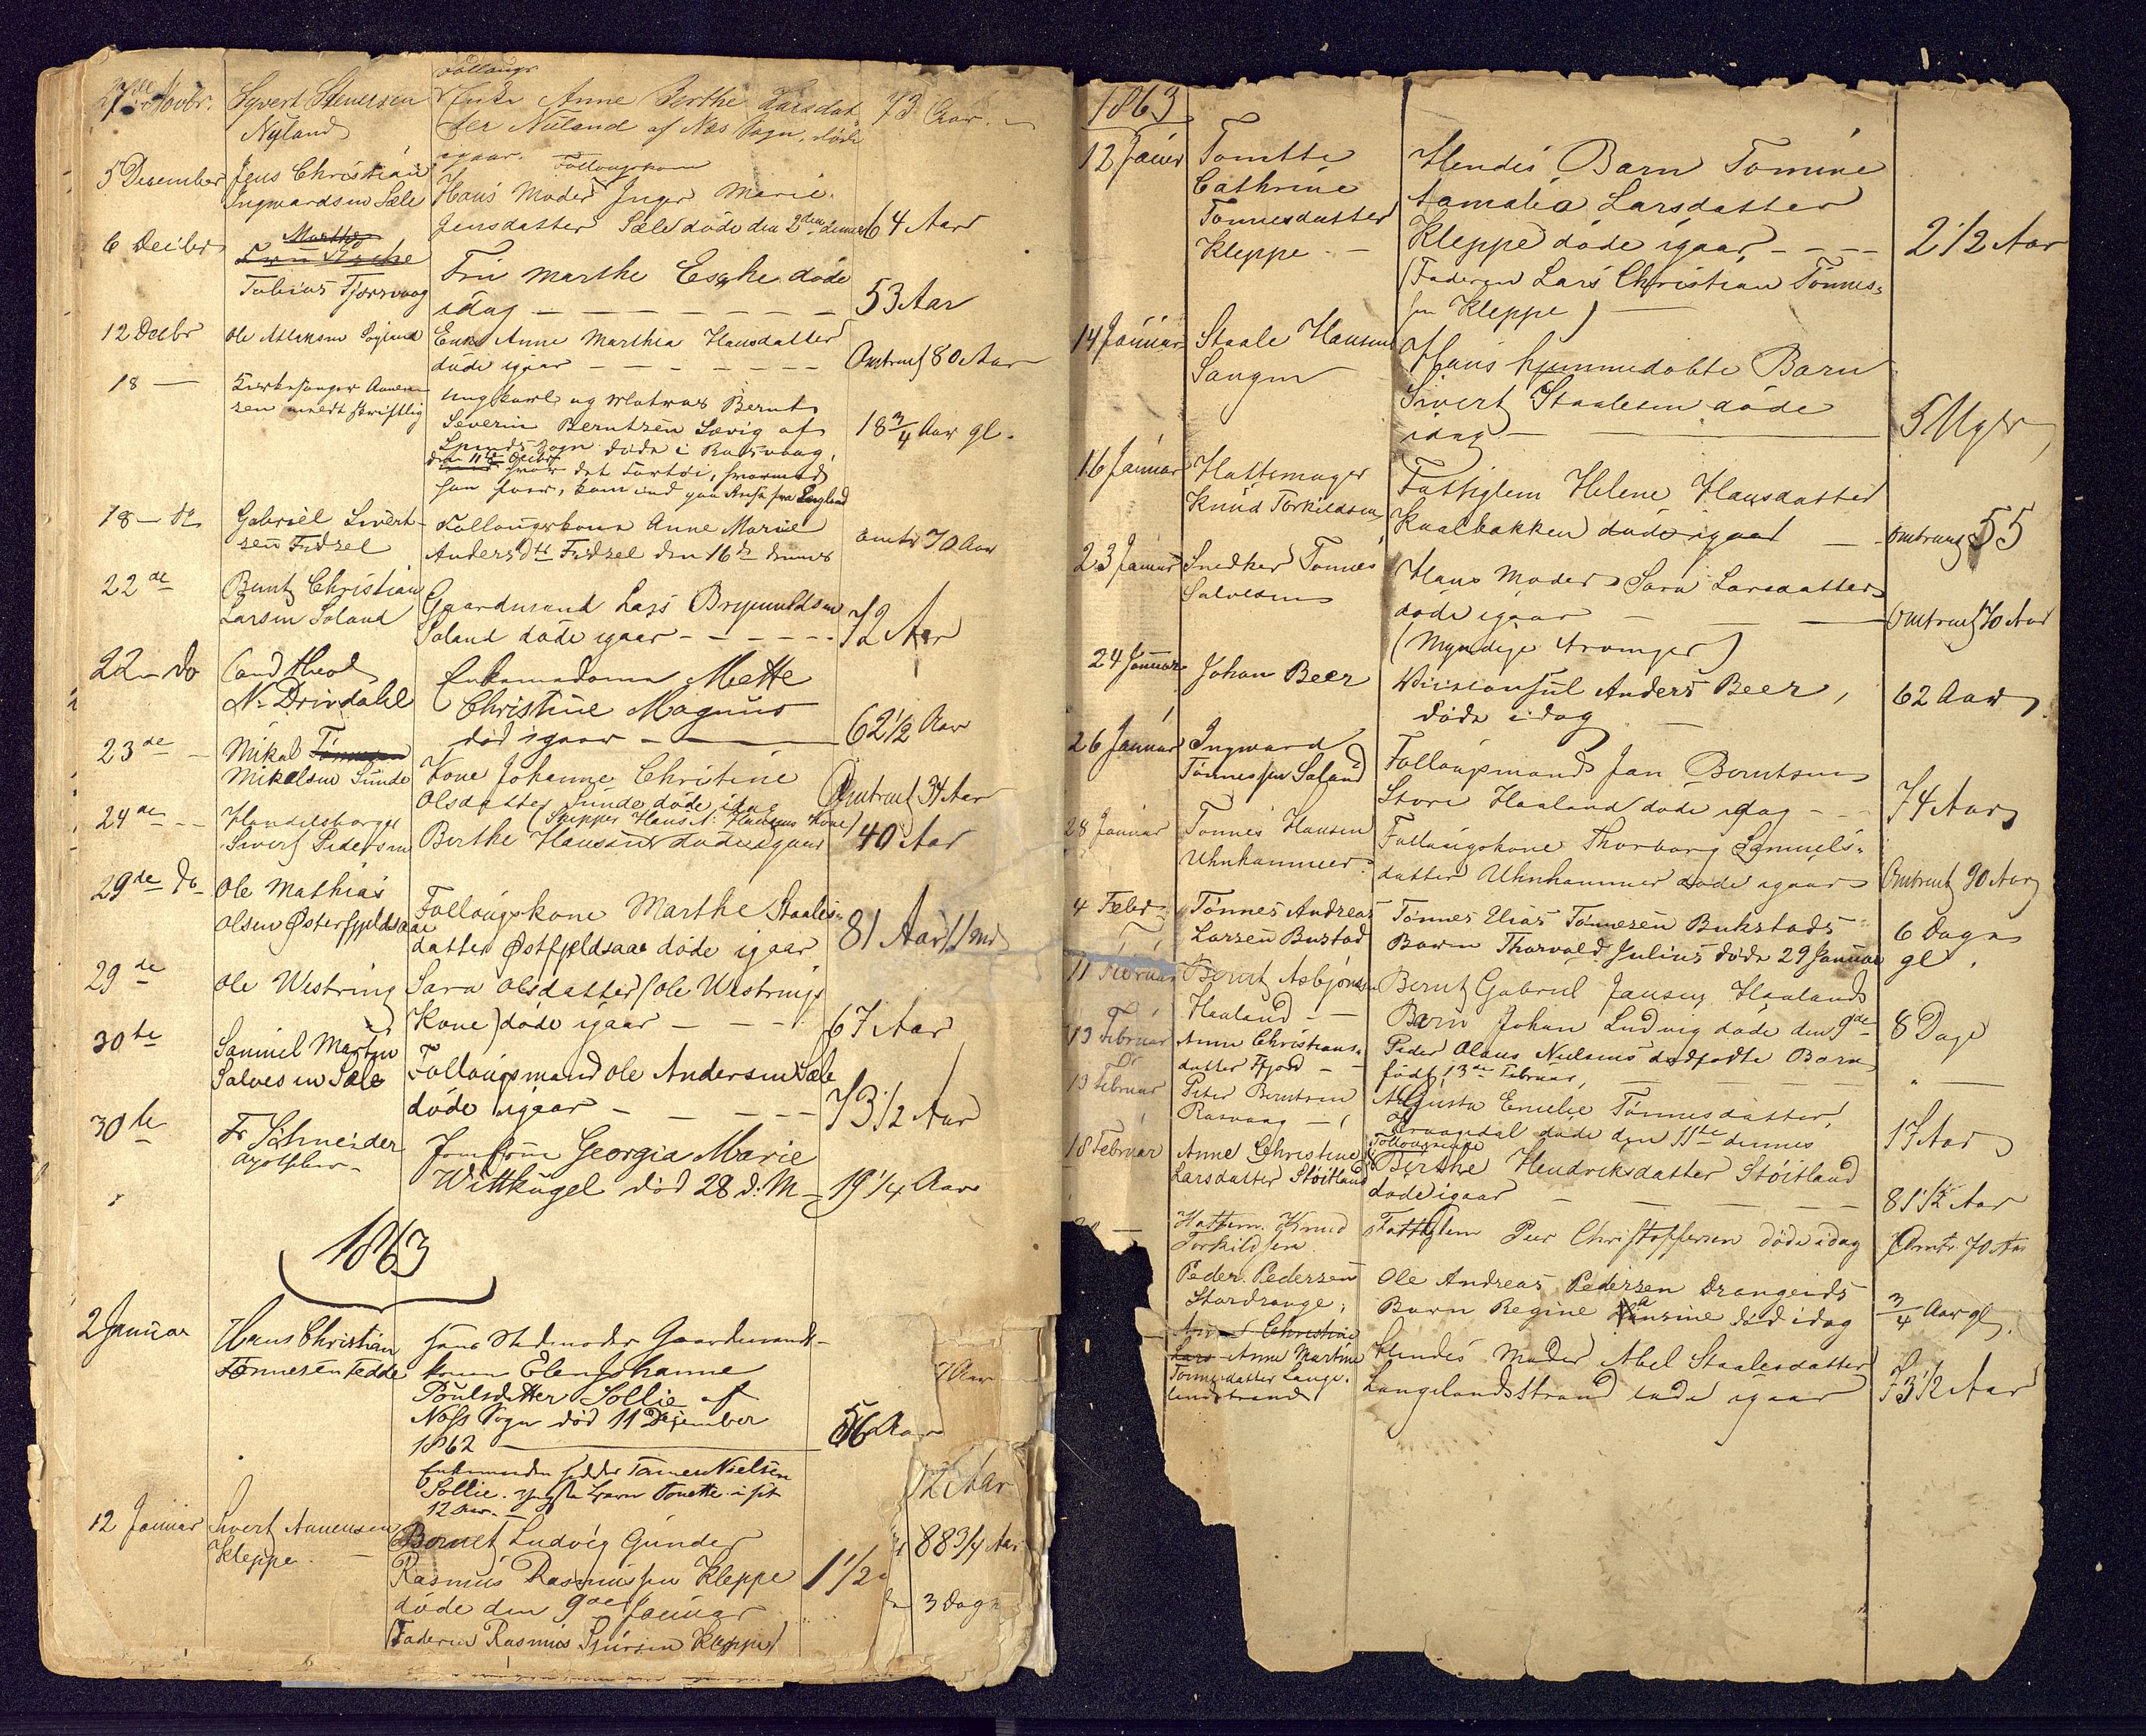 27de Novbr. Syvert Stenersen Follougs
Nyland Enke Anne Berthe Larsdat- 73 Aar.
ter Nuland af Næs Sogn, døde
igaar.
5 December Jens Christian Follougskone
Ingwardsen Sæle Hans Moder Inger Marie
Jensdatter Sæle døde den 2den dennes 64 Aar
6 Decbr Marthe
Fru Esche
Tobias Tjørsvaag Fru Marthe Esche døde
idag 53 Aar
12 Decbr Ole Atlaksen Enke Anne Marthea Hansdatter
døde igaar Omtrent 80 Aar
18 Kirkesanger Aanen-
sen meldt skriftlig Ungkarl og Matros Bernt
Severin Berntsen Løvig af 18 3/4 Aar gl.
Spinds Sogn døde i Rasvaag,
den 11te Decbr
han foer, kom ind paa Reise fra England
18 de Gabriel Sivert-
sen Fidsel Follougskone Anne Marie
Andersdtr Fidsel den 16de dennes omtr 70 Aar
22de Bernt Christian
Larsen Soland Gaardmand Lars Brynildsen
Soland døde igaar 72 Aar
22 do Cand theol
N. Drivdahl Enkemadame Mette
Christine Magnus
død igaar 62 1/2 Aar
23de Mikal
Mikalsen Sunde Kone Johanne Christine
Olsdatter Sunde døde idag Omtrent 34 Aar
24de Handelsborger (Skipper Hans N. Hansens Kone)
Sivert Pedersen Berthe Hansen døde igaar 40 Aar
29de do Ole Mathias
Olsen Østerfjeldsaae Follougskone Marthe Staales-
datter Østfjeldsaae døde igaar 81 Aar 11 md
29de Ole Westring Sara Olsdatter (Ole Westrings
Kone) døde igaar 67 Aar
30te Samuel Martin
Salvesen Sæle Follougsmand Ole Andersen Sæle
døde igaar 73 1/2 Aar
30te Fr Schneider
Apotheker Jomfrue Georgia Marie
Wittkugel død 28 d: M 19 1/4 Aar
1863
2 Januar Hans Christian
Tønnesen Fedde Hans Stedmoder Gaardmands-
konen Elen Johanne
Poulsdatter Sollie af
Næss Sogn død 11 December
1862 56 Aar
Enkemanden hedder Tønnes Nielsen
Sollie. yngste Barn Tonette i sit
12 Aar.
12 Januar Sivert Aanensen
Kleppe Barnet Ludvig Gunder
Rasmus Rasmussen Kleppe 1 1/2
døde den 9de Januar
(Faderen Rasmus Kleppe)
12 Aar
88 3/4 Aar
3 Dage
1863
12 Januar Tomette
Cathrine
Tonnesdatter
Kleppe Hendes Barn Tomine
Aamalia Larsdatter
Kleppe døde igaar 2 1/2 Aar
(Faderen Lars Christian Tønnes-
sen Kleppe)
14 Januar Staale Hansen
Sangen Hans hjemmedøbte Barn
Sivert Staalesen døde
idag 5 Uger
16 Januar Hattemager
Knud Torkildsen Fattiglem Helene Hansdatter
Kaalbakken døde igaar omtrent 55
23 Januar Snedker Tonnes
Salvesen Hans Moder Sara Larsdatter
døde igaar Omtrent 70 Aar
(Myndige Arvinger)
24 Januar Johan Beer Viceconsul Anders Beer,
døde idag 62 Aar
26 Januar Ingward
Tønnessen Soland Follougsmand Jan Berntsen
Store Haaland døde idag 74 Aar
28 Januar Tonnes Hansen
Uhnhammer Follougskone Thorborg Samuels-
datter Uhnhammer døde igaar Omtrent 90 Aar
4 Febr Tønnes Andreas
Larsen Bustad Tønnes Elias Tønnesen Bukstads
Barn Thorvald Julius døde 29 Januar 6 Dage gl.
11 Februar Bernt Asbjørnsen
Haaland Bernt Gabriel Jansen Haalands
Barn Johan Ludvig døde den 9de 8 Dage
13 Februar Anne Christians-
datter Fjord Peder Olaus Nielsens dødfødte Barn
født 13de Februar,
13 Februar Peter Berntsen
Rasvaag Augusta Emelie Tønnesdatter,
døde den 11te dennes 17 Aar
18 Februar Anne Christine
Larsdatter Støitland Follougsenke
Birthe Hendriksdatter Støitland
døde igaar 81 1/2 Aar
Hattem. Knud
Torkildsen Fattiglem Peer Christoffersen døde idag Omtr 70 Aar
Peder Pedersen
Stordrange Ole Andreas Pedersen Drangeids
Barn Regine Hansine død idag 3/4 Aar gl.
Christine
Lars Anne Martine
Tonnesdatter Lange-
landsstrand Hendes Moder Abel Staalesdatter
Langelandsstrand døde igaar 73 1/2 Aar